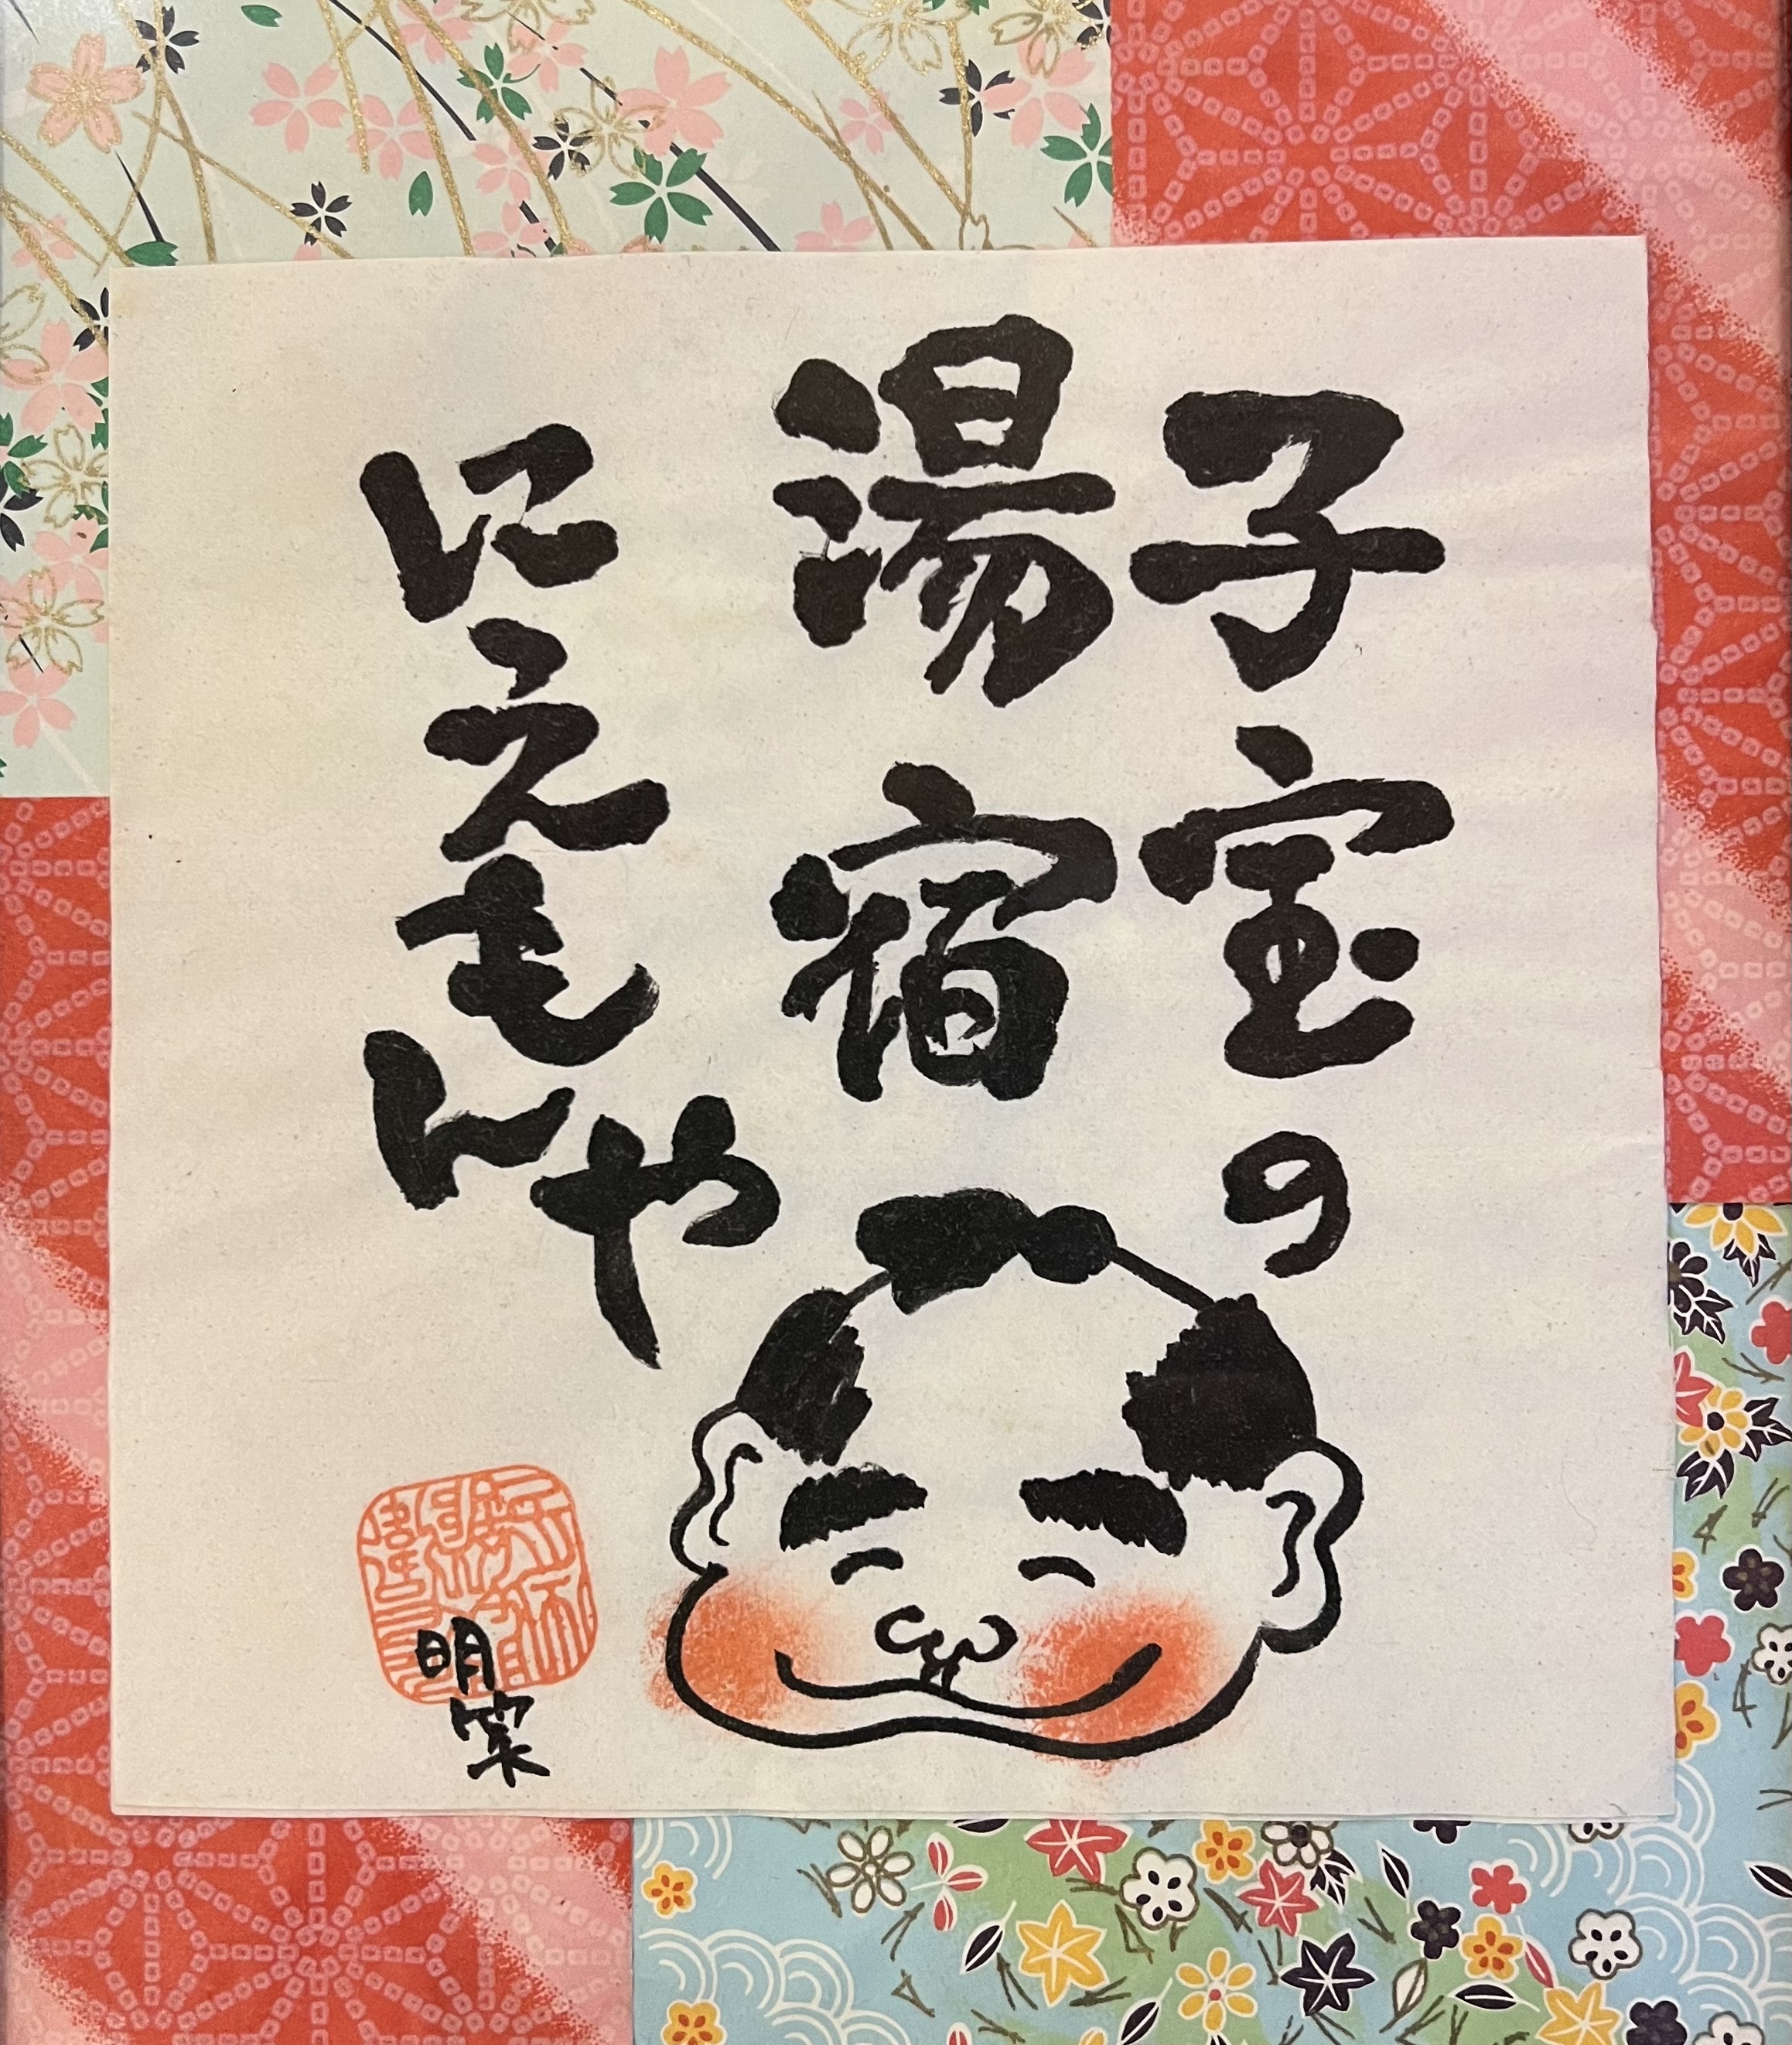 子宝の
湯宿
にえもんや
明